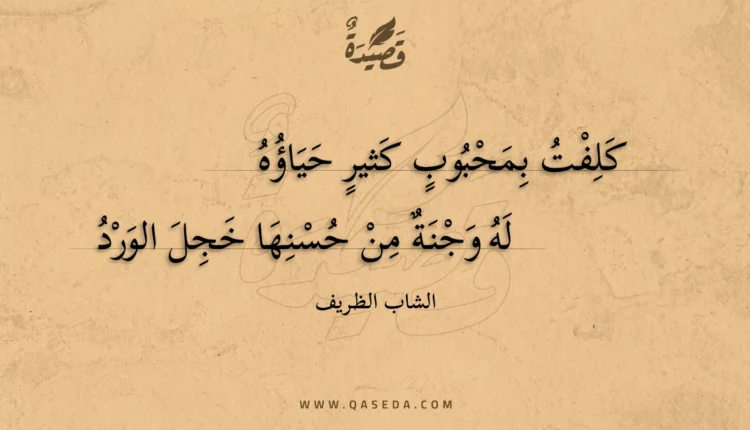 قَصِيدَةٌ
كَلِفْتُ بِمَحْبُوبٍ كَثيرٍ حَيَاؤُهُ
لَهُ وَجْنَةٌ مِنْ حُسْنِهَا خَجِلَ الوَرْدُ
الشاب الظريف
WWW.QASEDA.COM